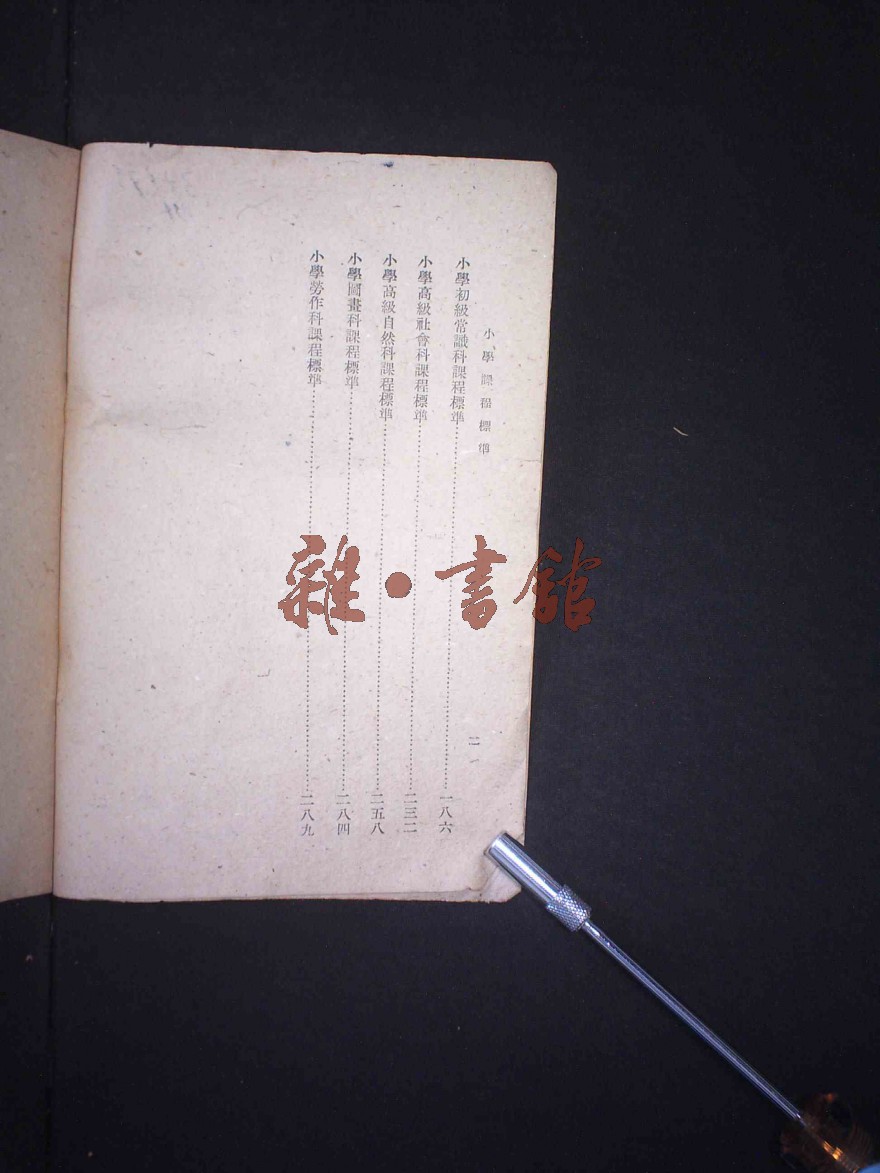 小學課程標準
二
小學初級常識科課程標準…………一八六
小學高級社會科課程標準…………二三二
小學高級自然科課程標準…………二五八
小學圖畫科課程標準…………二八四
小學勞作科課程標準…………二八九
雜·書館